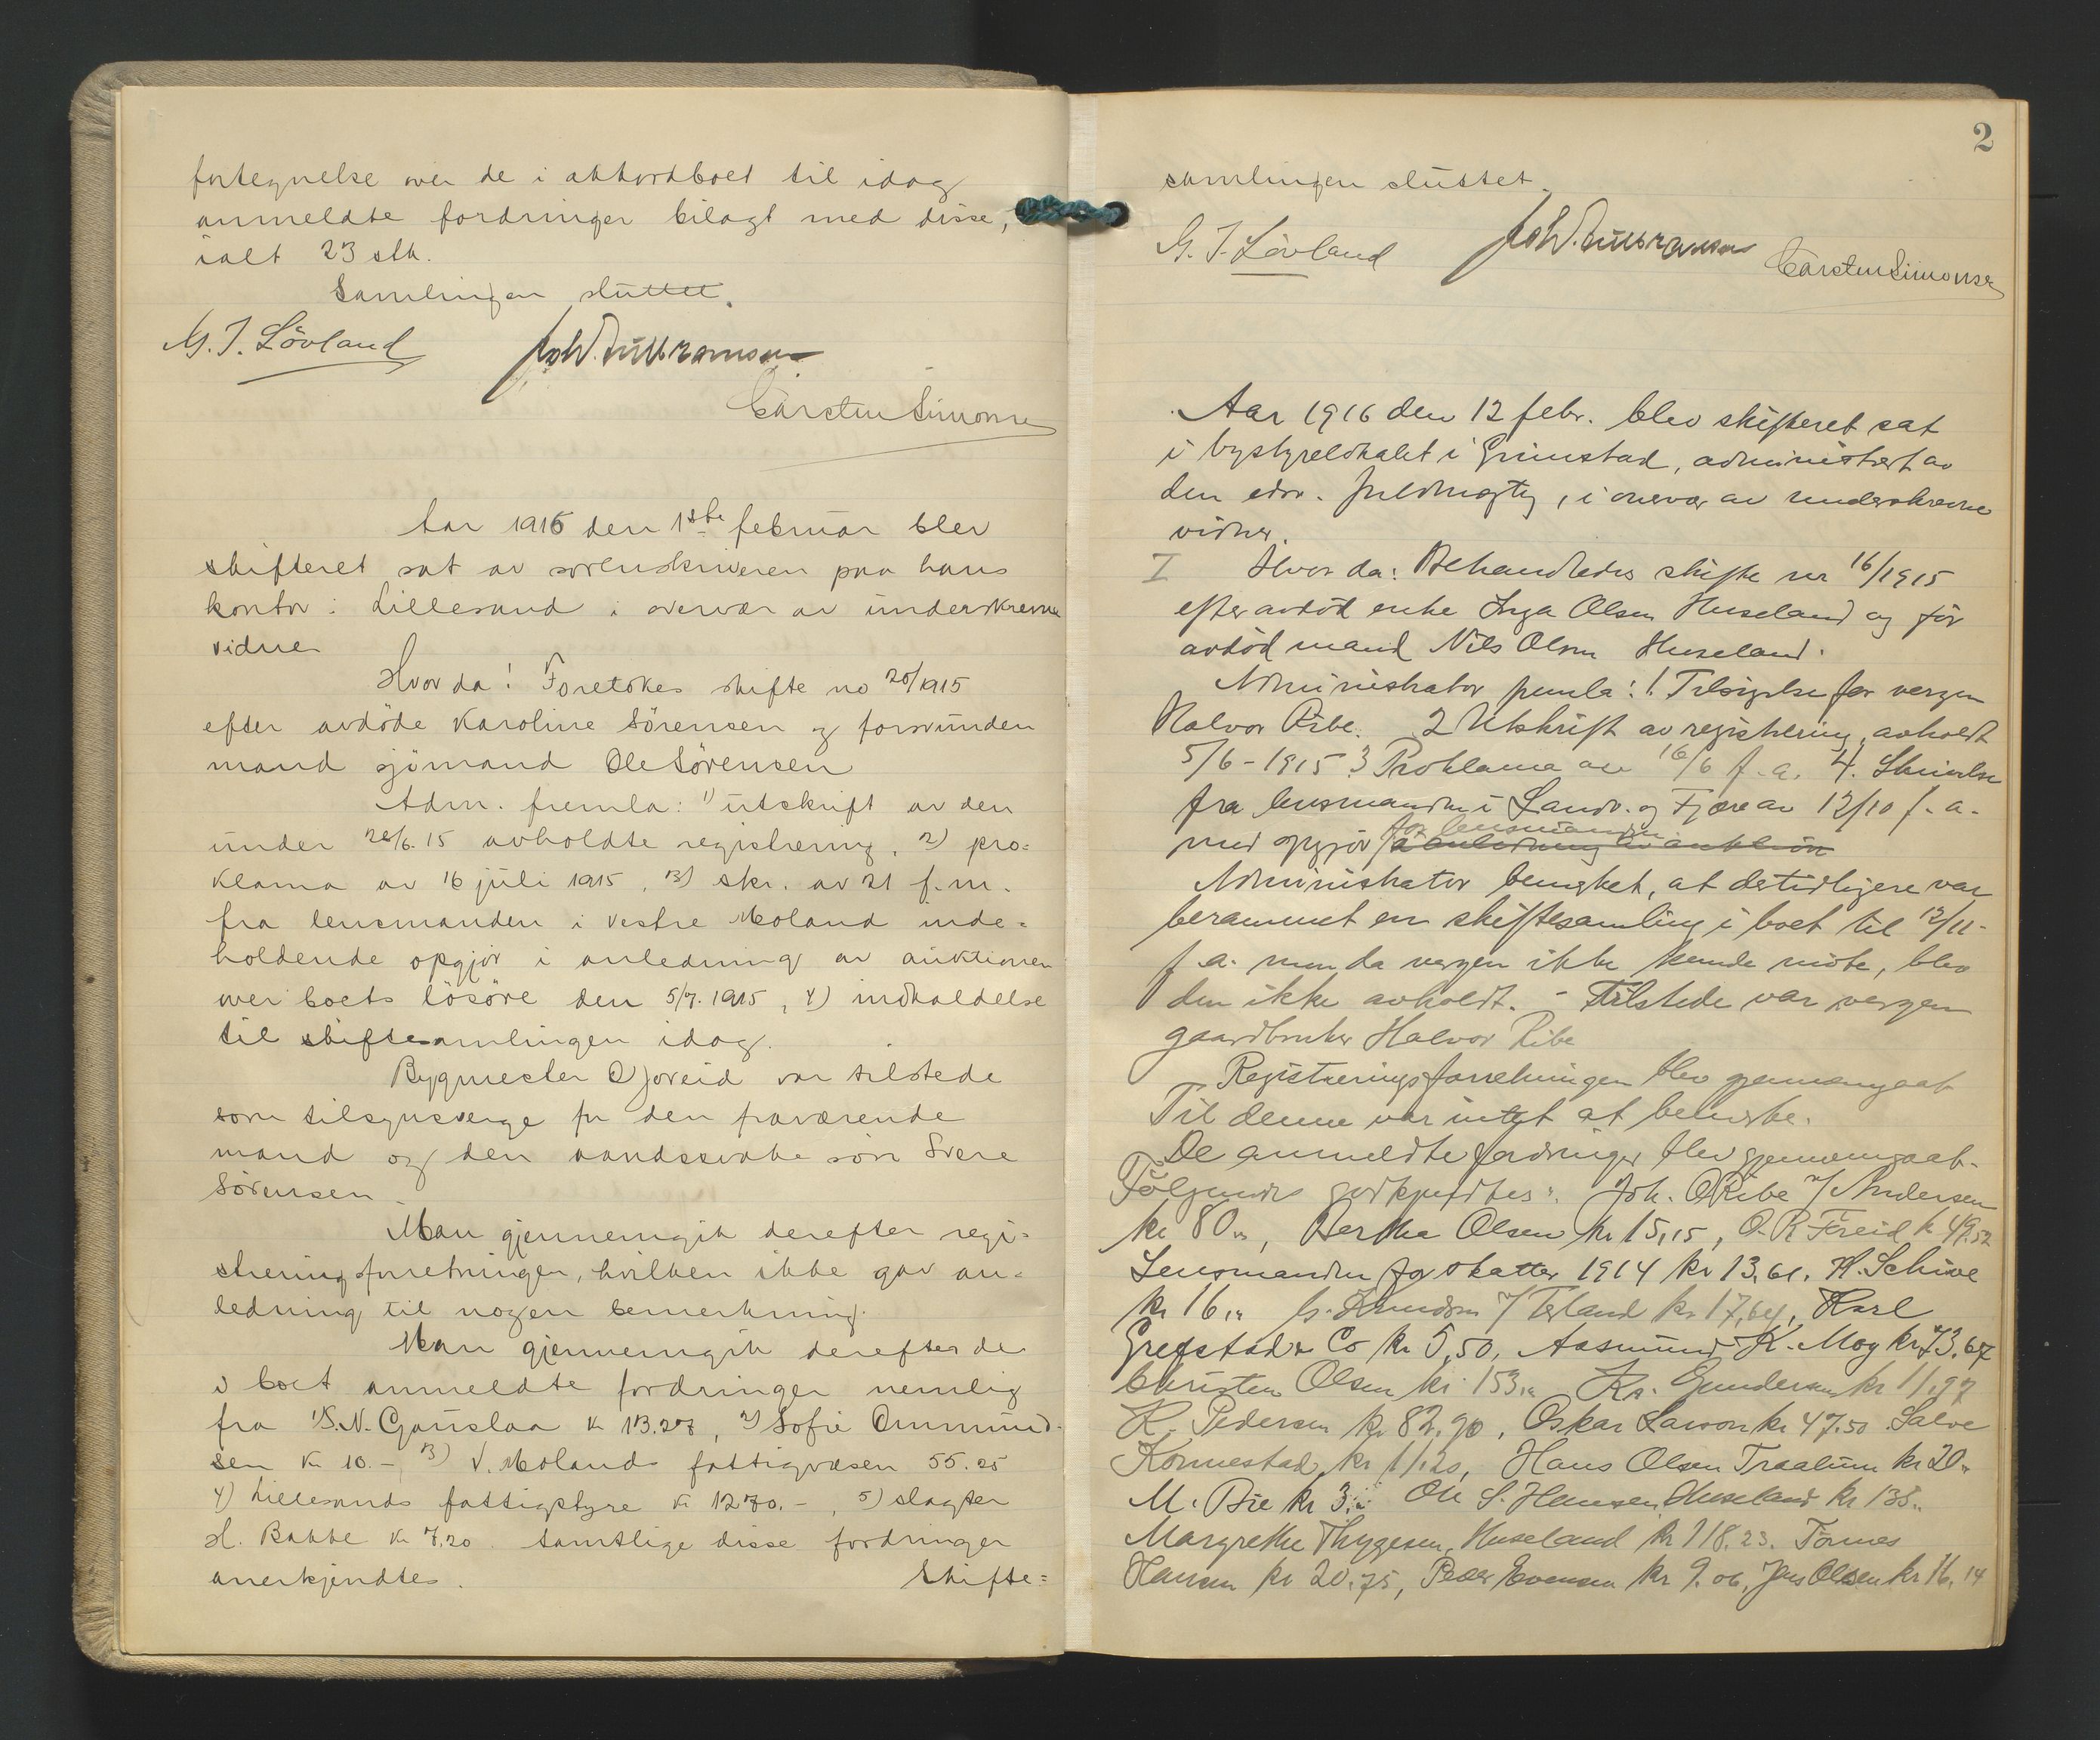 fortegnelse over de i akkordboet til idag
anmeldte fordringer bilagt med disse,
ialt 23 stk.
Samlingen sluttet.
G. T. Lövland
Carsten Simonsen
Aar 1916 den 1ste februar blev
skifteret sat av sorenskriveren paa hans
kontor i Lillesand i overvær av underskrevne
vidner
Hvor da: Foretokes skifte no 20/1915
efter avdöde Karoline Sörensen og forsvunden
mand sjömand Ole Sörensen
Adm. fremla: 1) utskrift av den
under 26/6. 15 avholdte registrering, 2) pro=
klama av 16 juli 1915, 3) skr. av 21 f.m.
fra lensmanden i vestre Moland inde=
holdende opgjör i anledning av auktionen
over boets lösöre den 5/7. 1915, 4) indkaldelse
til skiftesamlingen idag.
Bygmester O Joreid var tilstede
som tilsynsverge for den fraværende
mand og den aandssvake sön Svere
Sörensen.
Man gjennemgik derefter regi=
streringsforretningen, hvilken ikke gav an=
ledning til nogen bemerkning.
Man gjennemgik derefter de
i boet anmeldte fordringer nemlig
fra 1) S.N. Gauslaa kr 113.27, 2) Sofie Ommund=
sen kr 10.- 3) V. Molands fattigvæsen 55.25
4) Lillesands fattigstyre kr 1270.-, 5) slagter
H. Bakke kr 7,20. Samtlige disse fordringer
anerkjendtes. Skifte=
2
samlingen sluttet.
G. T. Lövland
Carsten Simonsen
Aar 1916 den 12 febr. blev skifteret sat
i bystyrelokalet i Grimstad, administrert av
den edsv. fuldmægtig, i overvær av underskrevne
vidner.
I Hvor da: Behandledes skifte nr 16/1915
efter avdöd enke Inga Olsen Huseland og för
avdöd mand Nils Olsen Huseland.
Administrator fremla: 1. Tilsigelse for vergen
Halvor Ribe. 2 Utskrift av registrering, avholdt
5/6-1915 3 Proklama av 16/6 f.a. 4. Skrivelse
fra lensmanden i Landv. og Fjære av 12/10 f.a.
for lensmanden
med opgjör i anledning av auktion
Administrator bemerket, at det tidligere var
berammet en skiftesamling i boet til 12/11-
f.a. men da vergen ikke kunde möte, blev
den ikke avholdt. - Tilstede var vergen
gaardbruker Halvor Ribe
Registreringsforretningen blev gjennemgaat
Til denne var intet at bemerke.
De anmeldte fordringer blev gjennemgaat.
Fölgende godkjendtes: Joh. O Ribe v/ Andersen
kr 80, Bertha Olsen kr 15,15, O. R Freid kr 49.52
Lensmanden for skatter 1914 kr 13.61. H. Schive
kr 16,, Knudsen v/ Terland kr 17,64, Karl
Grefstad & Co kr 5,50, Aasmund K. Moy kr 73.67
Christen Olsen kr 153,, Kr. Gundersen kr 11,97
K. Pedersen kr 82.90, Oskar Larson kr 47.50 Salve
Konnestad kr 11.20, Hans Olsen Traalum kr 20,,
M. Bie kr 3,, Ole S. Hansen Huseland kr 135,,
Margrethe Thygesen, Huseland kr 118.23. Tönnes
Hansen kr 20.75, Peder Evensen kr 9.06, Jens Olsen kr 16.14